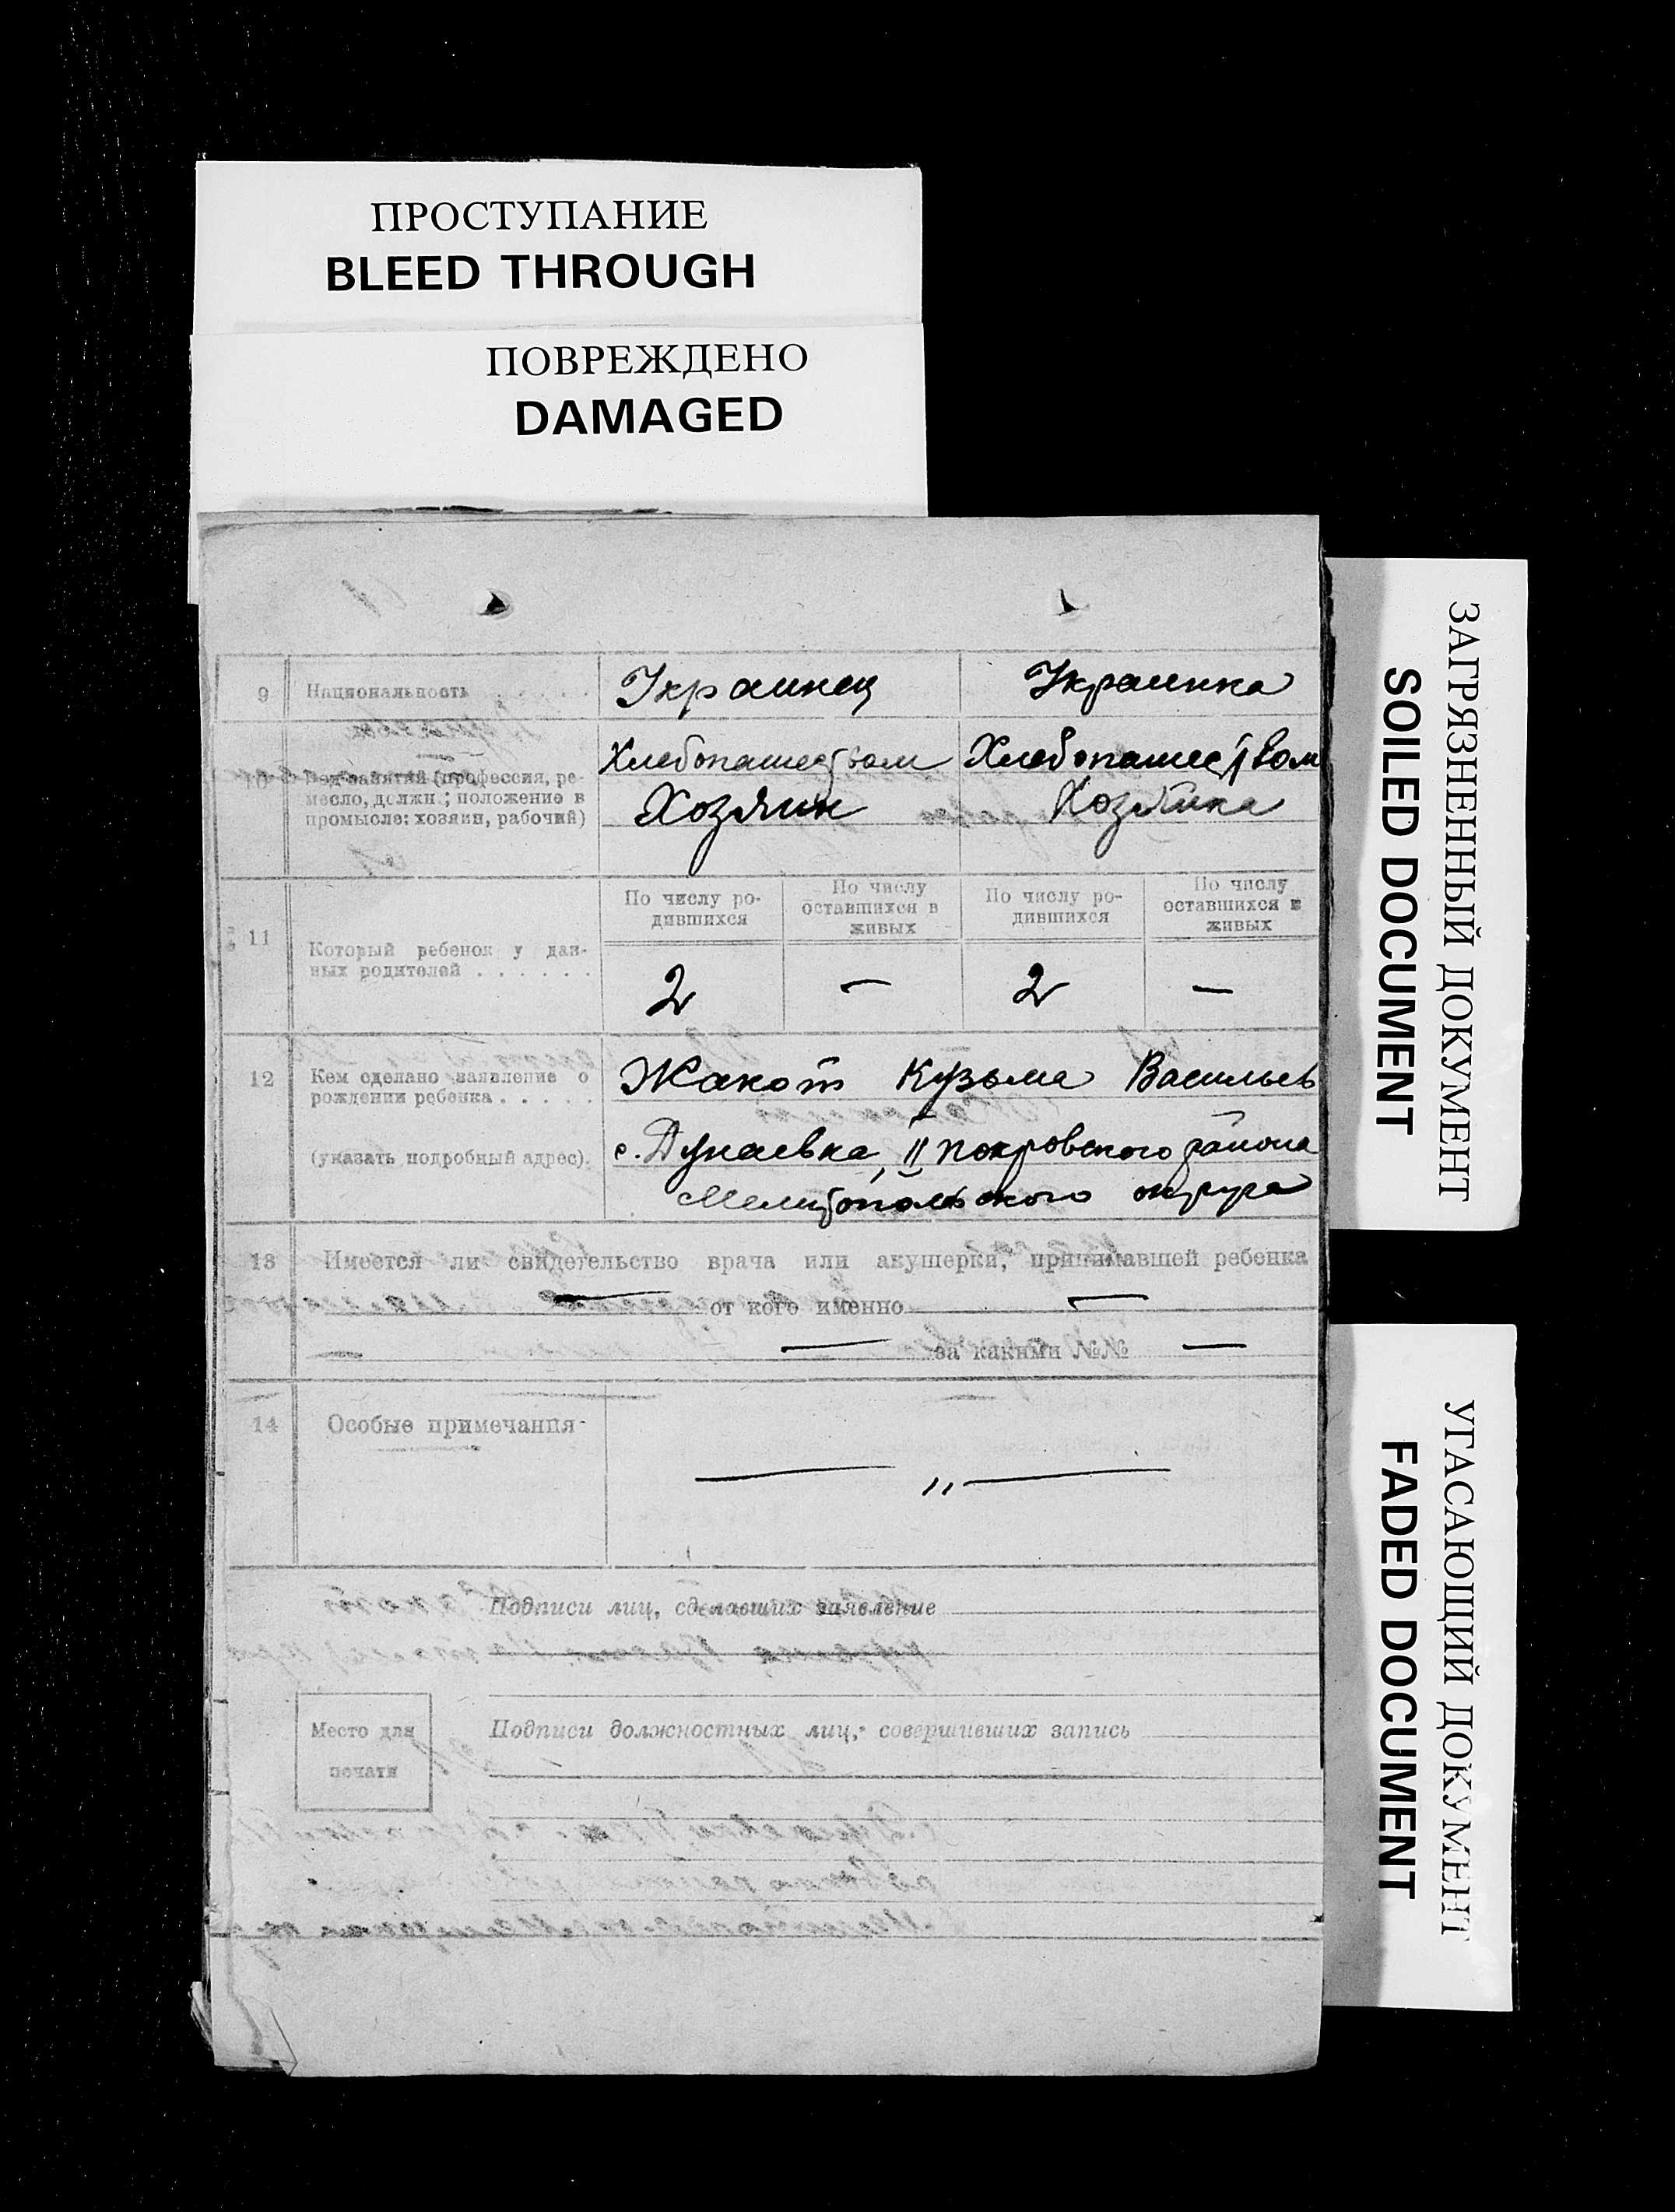 ПРОСТУПАНИЕ
BLEED THROUGH
ПОВРЕЖДЕНО
DAMAGED
9 Национальность . . . . . Украинец Украинка
Хлебопашеством Хлебопашеством
10 Род занятий (профессия, ре-
месло, должн.; положение в
промысле: хозяин, рабочий)
Хозяин Хозяйка
11 Который ребенок у дан-
ных родителей . . . . . . .
По числу ро-
дившихся
По числу
оставшихся в
живых
По числу ро-
дившихся
По числу
оставшихся в
живых
2 — 2 —
12 Кем сделано заявление о
рождении ребенка . . . . .
(указать подробный адрес).
Жакот Кузьма Васильев
с. Дунаевка, II покровского района
Мелитопольского округа
13 Имеется ли свидетельство врача или акушерки, принимавшей ребенка
— от кого именно —
— за какими №№ —
14 Особые примечания
— „ —
Подписи лиц, сделавших заявление
Место для
печати
Подписи должностных лиц, совершивших запись
ЗАГРЯЗНЕННЫЙ ДОКУМЕНТ
SOILED DOCUMENT
УГАСАЮЩИЙ ДОКУМЕНТ
FADED DOCUMENT